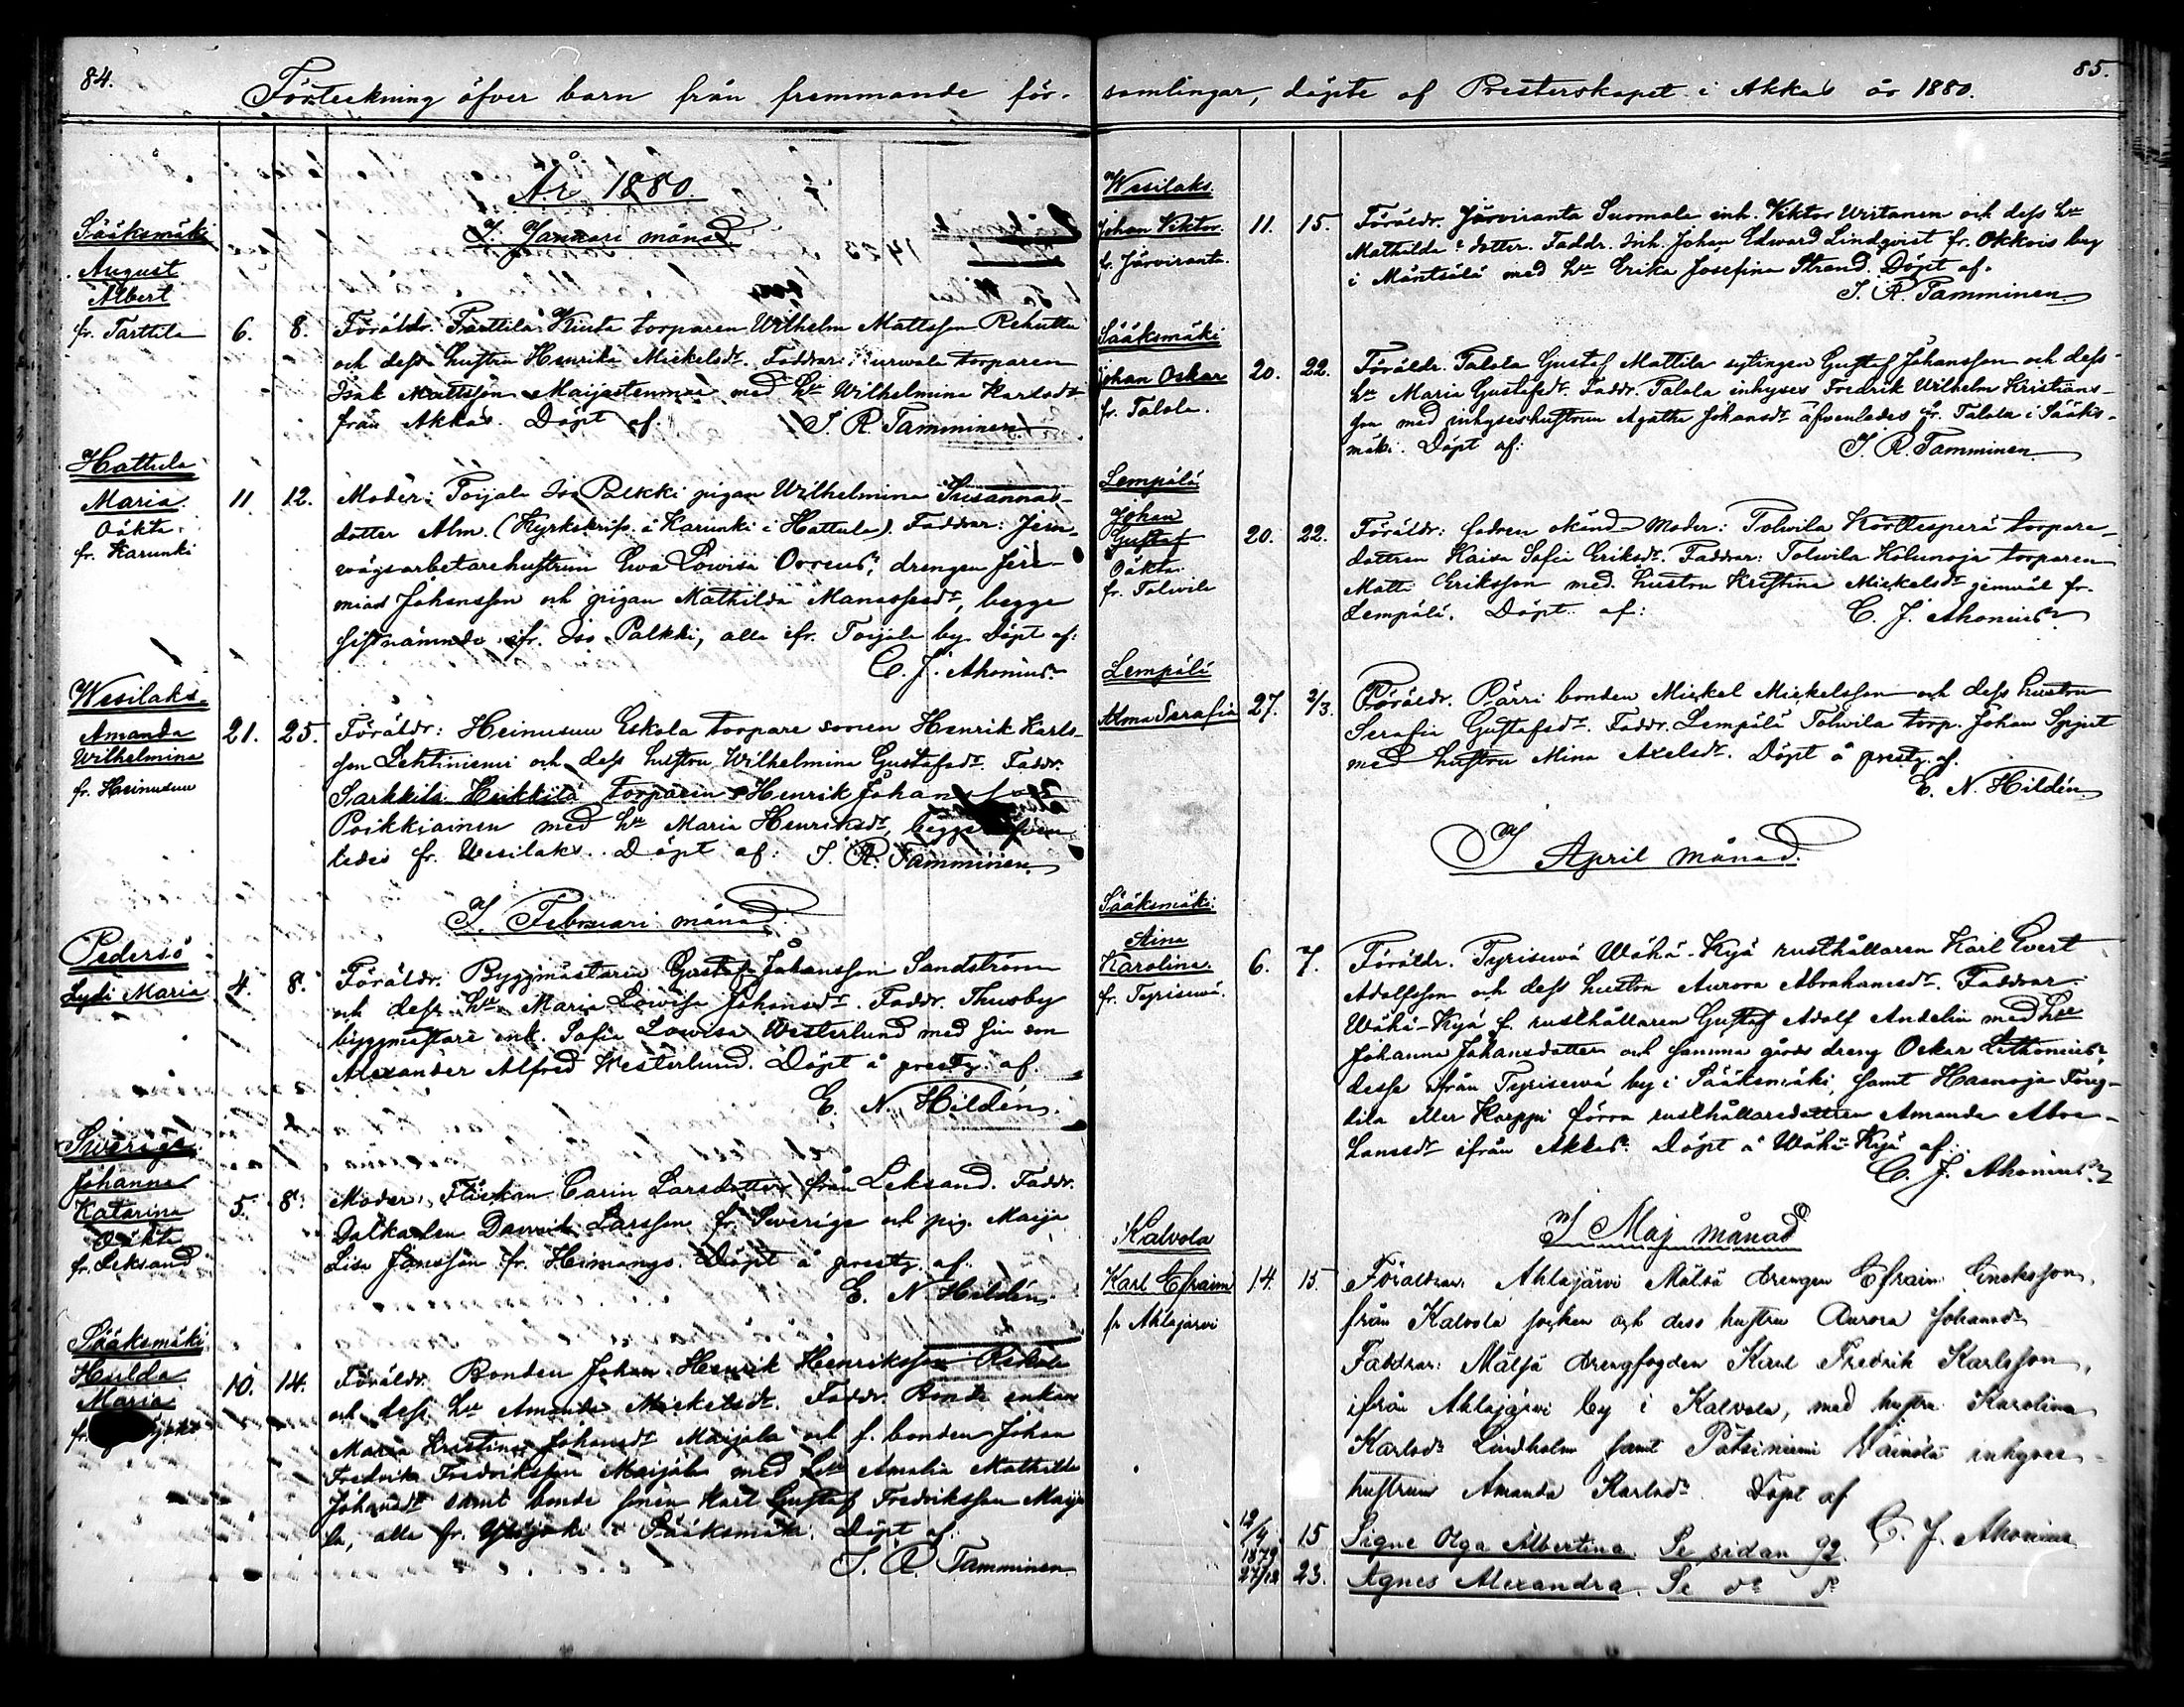 84.
Förteckning öfver barn från fremmande för-
År 1880.
I. Januari månad.
Sääksmäki
August
Albert
fr. Tarttila
6. 8. Föräldr. Tarttila Kinta torparen Wilhelm Mattsson
och dess hustru Henrika Mickelsdr. Faddrar: torparen
Isak Mattsson med hu Wilhelmina Karlsdr
från Akkas. Döpt af J. R. Tamminen
Hattula
Maria
Oäkta
fr. Karunki
11. 12. Moder: Toijala Iso Palkki pigan Wilhelmina Susannas-
dotter Alm. (Kyrkskrifv. i Karunki i Hattula). Faddrar: Jern-
vägsarbetarehustrun Ewa Lowisa drengen Jere-
mias Johansson och pigan Mathilda Manassesdr, begge
sistnämnde ifr. Iso Palkki, alla ifr. Toijala by. Döpt af:
C. J. Ahonius
Wesilaks
Amanda
Wilhelmina
fr. Heinusuu
21. 25. Föräldr: Heinusuu Eskola torpare sonen Henrik Karls-
son Lehtiniemi och dess hustru Wilhelmina Gustafsdr. Faddr.
Sarkkila Heikkilä torparen Henrik Johansson
Poikkiainen med hu Maria Henriksdr, begge
ledes fr. Wesilaks. Döpt af: J. R. Tamminen.
I. Februari månad.
Pedersö
Lydi Maria
4. 8. Föräldr. Byggmästaren Gustaf Johansson Sandström
och dess hu Maria Lowisa Johansdr. Faddr. Thusby
byggmästare enk. Sofia Lowisa Westerlund med sin son
Alexander Alfred Westerlund. Döpt å prestg. af.
E. N. Hildén.
Swerige
Johanna
Katarina
Oäkta
fr. Leksand
5. 8. Moder: Flickan Carin Larsdotter från Leksand. Faddr.
Dalkarlen Larsson fr. Swerige och pig. Maija
Lisa Jansson fr. Heimongo. Döpt å prestg. af.
E. N. Hildén
Sääksmäki
Hulda
Maria
fr.
10. 14. Föräldr. Bonden Johan Henrik Henriksson
och dess hu Amanda Mickelsdr. Faddr. Bonde enkan
Maria Kristina Johansdr Maijala och f. bonden Johan
Fredrik Fredriksson Maijala med hu Amalia Mathilda
Johansdr samt bonde sonen Karl Gustaf Fredriksson Maija
la, alla fr. i Sääksmäki. Döpt af:
J. R. Tamminen
85.
samlingar, döpte af Presterskapet i Akkas år 1880.
Wesilaks
Johan Viktor
fr. Järviranta.
11. 15. Föräldr. Järviranta Suomala inh. Viktor Wirtanen och dess hu
Mathilda dotter. Faddr. Inh. Johan Edward Lindqvist fr. Okkois by
i Mäntsälä med hu Erika Josefina Strand. Döpt af.
J. R. Tamminen
Sääksmäki
Johan Oskar
fr. Talola.
20. 22. Föräldr. Talola Gustaf Mattila sytingen Gustaf Johansson och dess
hu Maria Gustafsdr. Faddr. Talola inhyses Fredrik Wilhelm Kristians-
son med inhyseshustrun Agatha Johansdr äfvenledes fr. Talola i Sääks-
mäki. Döpt af: J. R. Tamminen
Lempälä
Johan
Gustaf
Oäkta.
fr. Tolwila
20. 22. Föräldr: fadren okänd Moder: Tolwila Korttesperä torpare-
dottren Kaisa Sofia Eriksdr. Faddrar: Tolwila Kolunoja torparen
Matti Eriksson med hustru Kristina Mickelsdr jemväl fr.
Lempälä. Döpt af: C. J. Ahonius
Lempälä
Alma Serafia
27. 2/3. Föräldr. Pärri bonden Mickel Mickelsson och dess hustru
Serafia Gustafsdr. Faddr. Lempälä Tolwila torp. Johan Spjut
med hustru Mina Axelsdr. Döpt å prestg. af.
E. N. Hildén
I April månad.
Sääksmäki.
Aina
Karolina.
fr. Tyrisewä.
6. 7. Föräldr. Tyrisewä Wähä-Kyä rusthållaren Karl Evert
Adolfsson och dess hustru Aurora Abrahamsdr. Faddrar.
Wähä-Kyä f. rusthållaren Gustaf Adolf Andelin med hu
Johanna Johansdotter och samma gårds dreng Oskar Lethonius,
desse ifrån Tyrisewä by i Sääksmäki, samt Haanoja
tila eller Karppi förra rusthållaredottren Amanda Abra-
hamsdr ifrån Akkas. Döpt å Wähä-Kyä af:
C. J. Ahonius
I Maj månad
Kalvola
Karl Efraim
fr Ahlajärvi
14. 15. Föräldrar. Ahlajärvi Mälsä drengen Efraim Eneksson,
från Kalvola socken och dess hustru Aurora Johansdr
Faddrar: Mälsä drengfogden Karl Fredrik Karlsson,
ifrån Ahlajärvi by i Kalvola, med hustru Karolina
Karlsdr Lindholm samt Pätsiniemi Wainola inhyses-
hustrun Amanda Karlsdr. Döpt af
C. J. Ahonius
12/4 15 Signe Olga Albertina. Se sidan 92.
1879 27/12 23. Agnes Alexandra. Se do do